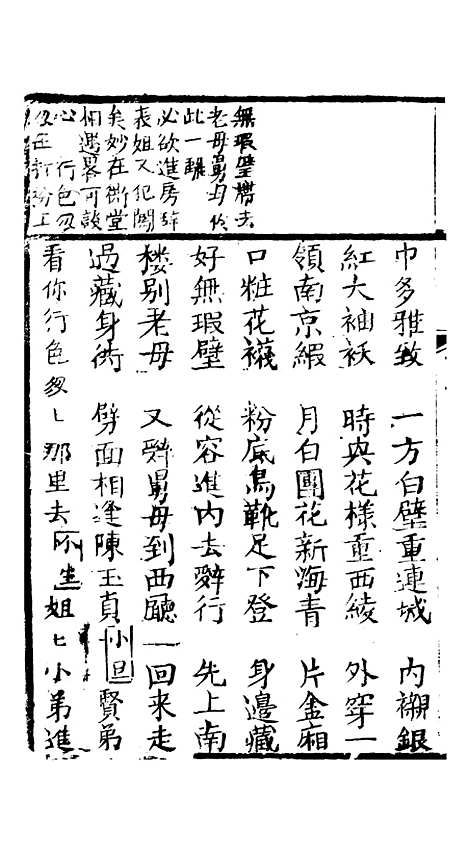 無瑕璧帶去
老母舅母作
此一驟
必欲進房辞
表姐又犯闖
矣妙在衖堂
相遇畧可談
心 行包忽
巾多雅致 一方白璧重連城 内襯銀
紅大袖袄 時興花様重西綾 外穿一
領南京緞 月白團花新海青 片金廂
口粧花襪 粉底鳥靴足下登 身邊藏
好無瑕璧 從容進内去辭行 先上南
楼别老母 又辭舅母到西廳 一回来走
過藏身衖 劈面相逢陳玉貞 小旦 賢弟
看你行色匆匕 那里去 生 姐匕小弟進